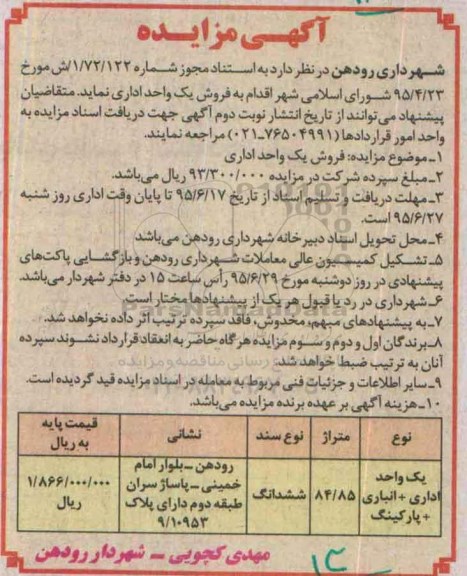 آگهی مزایده
شهرداری رودهن در نظر دارد به استناد مجوز شماره ۱/۷۲/۱۲۲/ش مورخ
۹۵/۴/۲۳ شورای اسلامی شهر اقدام به فروش یک واحد اداری نماید. متقاضیان
پیشنهاد می‌توانند از تاریخ انتشار نوبت دوم آگهی جهت دریافت اسناد مزایده به
واحد امور قراردادها (۷۶۵۰۴۹۹۱-۰۲۱) مراجعه نمایند.
۱-موضوع مزایده: فروش یک واحد اداری
۲-مبلغ سپرده شرکت در مزایده ۹۳/۳۰۰/۰۰۰ ریال می‌باشد.
۳-مهلت دریافت و تسلیم اسناد از تاریخ ۹۵/۶/۱۷ تا پایان وقت اداری روز شنبه
۹۵/۶/۲۷ است.
۴-محل تحویل اسناد دبیرخانه شهرداری رودهن می‌باشد
۵-تشکیل کمیسیون عالی معاملات شهرداری رودهن و بازگشایی پاکت‌های
پیشنهادی در روز دوشنبه مورخ ۹۵/۶/۲۹ رأس ساعت ۱۵ در دفتر شهردار می‌باشد.
۶-شهرداری در رد یا قبول هر یک از پیشنهادها مختار است.
۷-به پیشنهادهای مبهم، مخدوش، فاقد سپرده ترتیب اثر داده نخواهد شد.
۸-برندگان اول و دوم و سوم مزایده هرگاه حاضر به انعقاد قرارداد نشوند سپرده
آنان به ترتیب ضبط خواهد شد.
۹-سایر اطلاعات و جزئیات فنی مربوط به معامله در اسناد مزایده قید گردیده است.
۱۰-هزینه آگهی بر عهده برنده مزایده می‌باشد.
نوع متراژ نوع سند نشانی قیمت پایه به ریال
یک واحد اداری + انباری + پارکینگ ۸۴/۸۵ ششدانگ رودهن -بلوار امام خمینی -پاساژ سران طبقه دوم دارای پلاک ۹/۱۰۹۵۳ ۱/۸۶۶/۰۰۰/۰۰۰ ریال
مهدی کچویی - شهردار رودهن